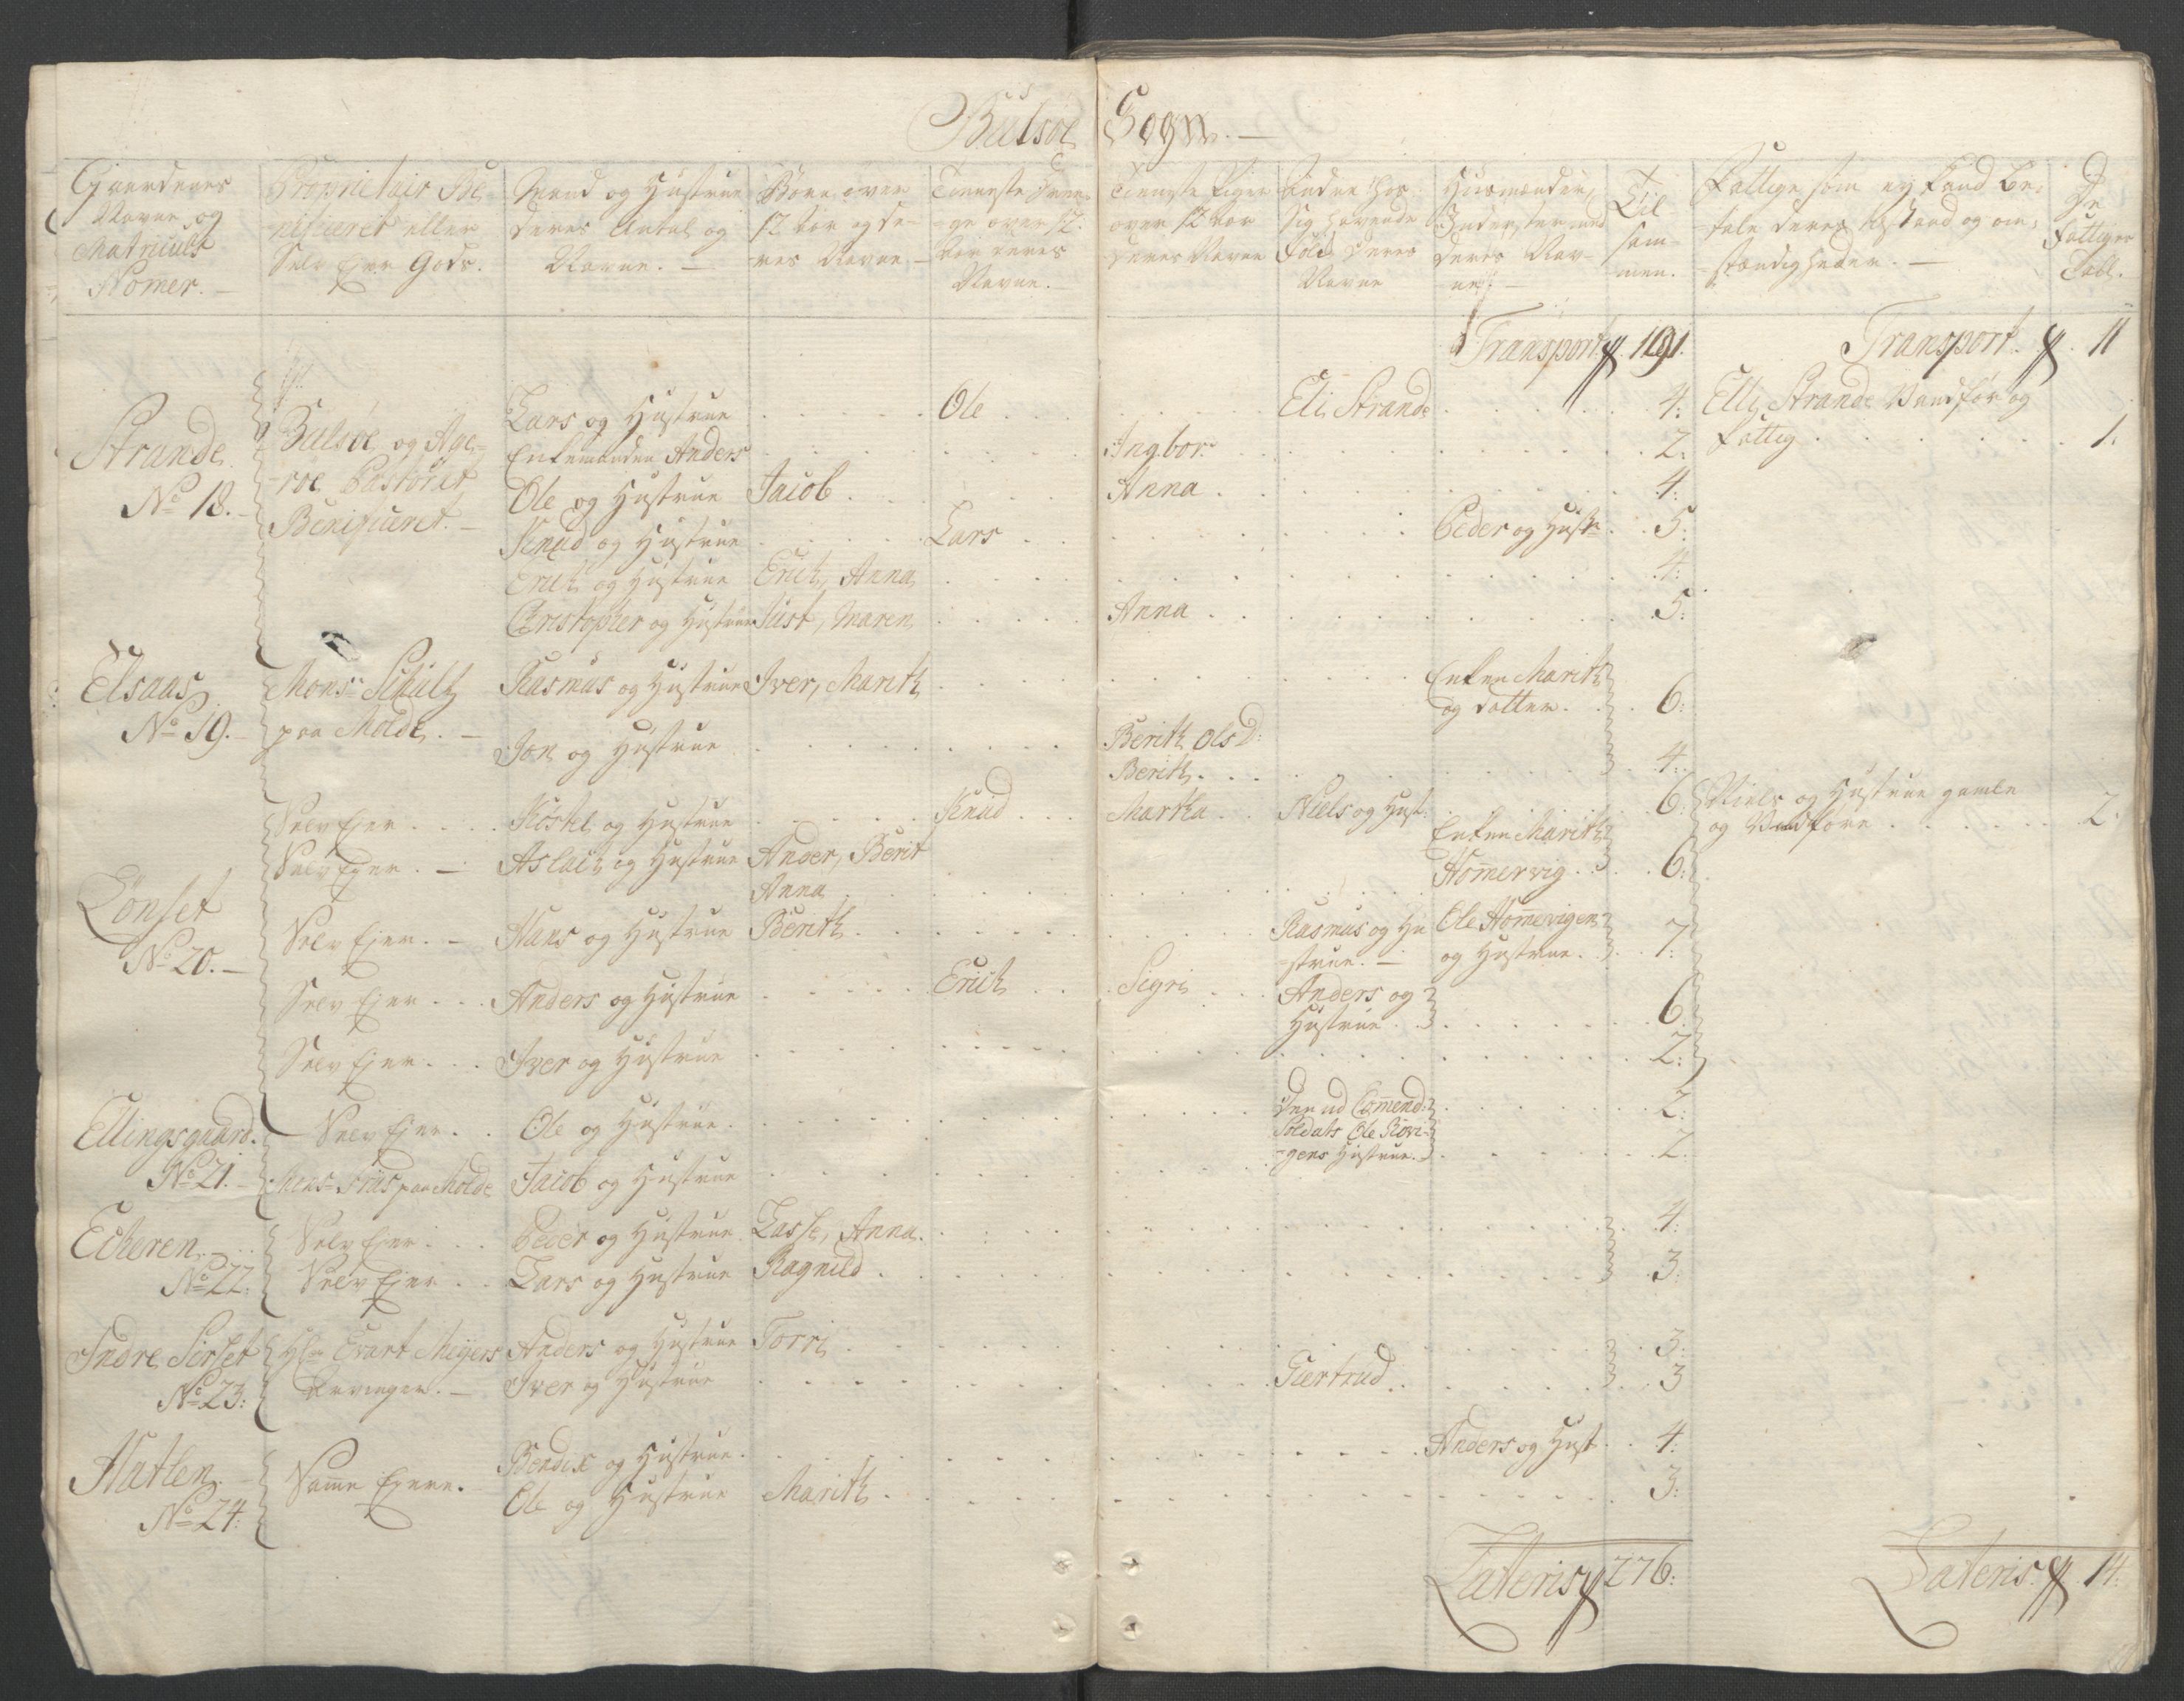 Bulsöe Sogn. —
Gaardenes
Navne og
Matriculs
Nomer. —
Proprietair Be-
nificeret eller
Selv Ejer Gods.
Mand og Hustrue
deres Antal og
Navne. —
Börn over
12 Aar og de-
res Navne —
Tieneste Dren-
ge over 12
Aar deres
Navne. —
Tieneste Piger
over 12 Aar
deres Navne
Andre Hos
Sig havende
Folk deres
Navne
Huusmænder,
Inderster med
deres Nav-
ne. —
Til
sam-
men.
Fattige som ej kand be-
tale deres Tilstand og om-
stændigheder. —
De
Fattiges
Tall.
Transport 191.
Transport. 11
Strande
No 18. —
Bulsöe og Age-
roe Pastorat
Benificeret. —
Lars og Hustrue . . . Ole . . . Eli Strande . . . 4:
Elli Strande Vandför og
Fattig . . . 1.
Enkemanden Anders . . . Ingbor . . . 2.
Ole og Hustrue Jacob . . . Anna . . . 4:
Knud og Hustrue . . . Lars . . . Peder og Hustr . . 5:
Erich og Hustrue Erich, Anna . . . 4:
Christopher og Hustrue Just, Maren . . . Anna . . . 5:
Elsaas
No 19. —
Monsr Schultz
paa Molde. —
Rasmus og Hustrue Iver, Marith . . . Enken Marith
og datter . . . 6:
Jon og Hustrue . . . Berith Ols D:
Berith . . . 4:
Lönset
No 20. —
Selv Ejer . . . Köstel og Hustrue . . . Knud . . . Martha . . Niels og Hust: . . . 6:
Niels og Hustrue gamle
og Vandföre . . . 2.
Selv Ejer . — Aslach og Hustrue Ander, Berit
Anna . . . Enken Marith
Hom̅ervig . . . 6:
Selv Ejer. — Hans og Hustrue Berith . . . Rasmus og Hu
strue. — Ole Hom̅evigen
og Hustrue . . 7:
Selv Ejer . . . Anders og Hustrue . . . Erich . . . Sigri . . . Anders og
Hustrue . . . 6.
Selv Ejer . . . Iver og Hustrue . . . 2:
Ellingsgaard.
No 21. —
Selv Ejer . . Ole og Hustrue . . . Den ud Com̅end:
Soldats Ole Rovi-
gens Hustrue. . . . 2:
Mons Friis paa Molde Jacob og Hustrue . . . 2.
Eckeren
No 22:
Selv Ejer . . . Peder og Hustrue Lasse, Anna . . . 4:
Selv Ejer . . Lars og Hustrue Ragnild . . . 3:
Indre Serset
No 23:
Hr Evart Meijers
Arvinger. —
Anders og Hustrue Torri . . . 3:
Iver og Hustrue . . . Giertrud . . . 3
Hatlen
No 24:
Sam̅e Ejere.
Bendix og Hustrue . . . Anders og Hust . . 4:
Ole og Hustrue Marith . . . 3:
Lateris 276:
Lateris 14.